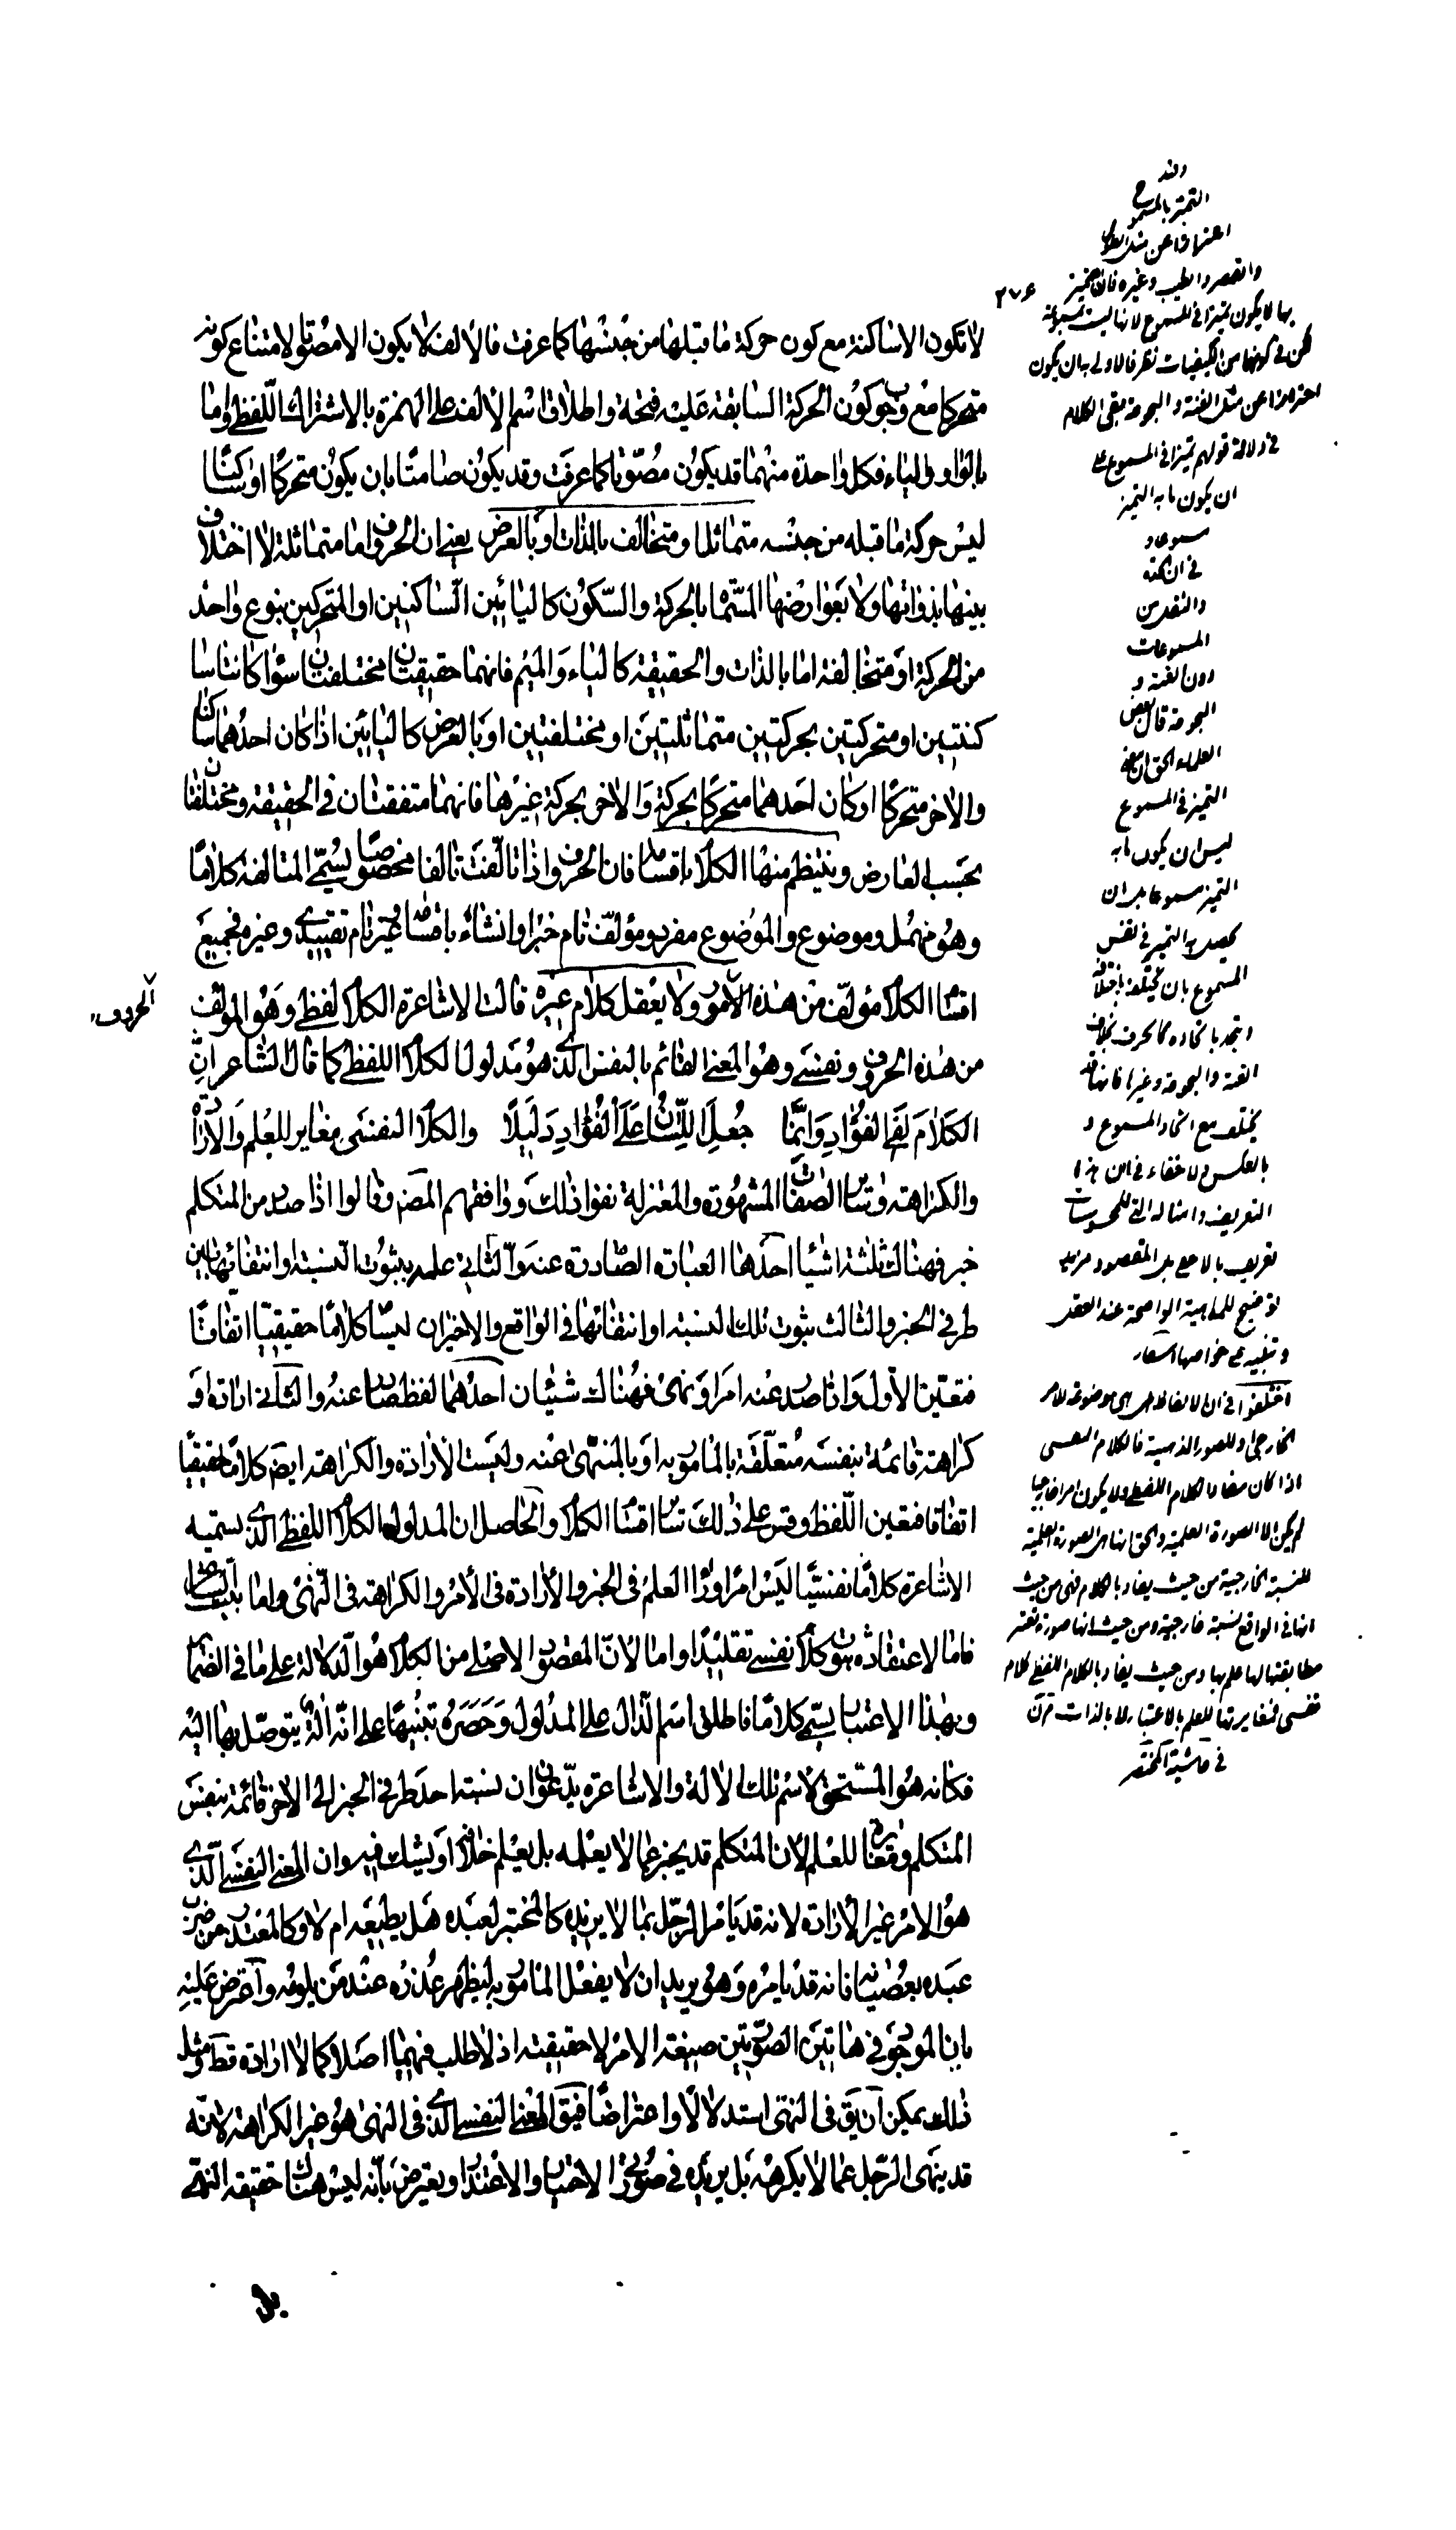 ٢٧٤
لا تكون الا ساكنة مع كون حركة ما قبلها من جنسها كما عرفت فالالف لا يكون الا مصوتا لامتناع كونه
متحركا مع وجوب كون الحركة السابقة عليه فتحة واطلاق اسم الالف على الهمزة بالاشتراك اللفظي واما
بالواو والياء فكل واحدة منهما قد يكون مصوتا كما عرفت وقد يكون صامتا بان يكون متحركا او ساكنا
ليس حركة ما قبله من جنسه متماثلا ومتخالف بالذات او بالعرض يعني ان الحروف اما متماثلة لا اختلاف
بينها بذواتها ولا بعوارضها المسماة بالحركة والسكون كاليائين الساكنين او المتحركين بنوع واحد
من الحركة او متخالفة اما بالذات والحقيقة كالياء والميم فانهما حقيقتان مختلفتان سواء كانتا سا
كنتين او متحركتين بحركتين متماثلتين او مختلفتين او بالعرض كاليائين اذا كان احدهما ساكنا
والاخر متحركا او كان احدهما متحركا بحركة والاخر بحركة غيرها فانهما متفقتان في الحقيقة ومختلفتان
بحسب العارض وينتظم منها الكلام باقسامه فان الحروف اذا تالفت تالفا مخصوصا يسمى المتالفة كلاما
وهو مهمل وموضوع والموضوع مفرد ومؤلف تام خبر او انشاء باقسامه وغير تام تقييدي وغيره فجميع
اقسام الكلام مؤلف من هذه الامور ولا يعقل كلام غيره قالت الاشاعرة الكلام لفظي وهو المؤلف
الحروف
من هذه الحروف ونفسي وهو المعنى القائم بالنفس الذي هو مدلول الكلام اللفظي كما قال الشاعر ان
الكلام لفي الفؤاد وانما جعل اللسان على الفؤاد دليلا والكلام النفسي مغاير للعلم والارادة
والكراهة وسائر الصفات المشهورة والمعتزلة نفوا ذلك ووافقهم المصـ وقالوا اذا صدر من المتكلم
خبر فهناك ثلثة اشياء احدها العبارة الصادرة عنه والثاني علمه بثبوت النسبة او انتفائها بين
طرفي الخبر والثالث ثبوت تلك النسبة او انتفائها في الواقع والاخيران ليسا كلاما حقيقيا اتفاقا
فتعين الاول واذا صدر عنه امر او نهى فهناك شيئان احدهما لفظ صادر عنه والثاني ارادة او
كراهة قائمة بنفسه متعلقة بالمامور به او بالمنهى عنه وليست الارادة والكراهة ايضـ كلاما حقيقيا
اتفاقا فتعين اللفظ وقس على ذلك سائر اقسام الكلام والحاصل ان المدلول الكلام اللفظي الذي يسميه
الاشاعرة كلاما نفسيا ليس امرا وراء العلم في الخبر والارادة في الامر والكراهة في النهى واما
فاما لاعتقاده ثبوت كلام نفسي تقليدا واما لان المقصود الاصلي من الكلام هو الدلالة على ما في الضماير
وبهذا الاعتبار يسمى كلاما فاطلق اسم الدال على المدلول وحصره تنبيها على انه آلة يتوصل بها اليه
فكانه هو المستحق لاسم تلك الالة والاشاعرة يدعون ان نسبة احد طرفي الخبر الى الاخر قائمة بنفس
المتكلم ومغايرة للعلم لان المتكلم قد يخبر عما لا يعلمه بل يعلم خلافه او يشك فيه وان المعنى النفسي الذي
هو الامر غير الارادة لانه قد يامر الرجل بما لا يريده كالمختبر لعبده هل يطيعه ام لا وكالمعتذر من ضرب
عبده بعصيانه فانه قد يامره وهو يريد ان لا يفعل المامور به ليظهر عذره عند من يلومه واعترض عليه
بان الموجود في هاتين الصورتين صيغة الامر لا حقيقته اذ لا طلب فيهما اصلا كما لا ارادة قطعا ومثل
ذلك يمكن ان يقـ في النهى استدلالا واعتراضا فيقـ المعنى النفسي الذي في النهى هو غير الكراهة لانه
قد ينهى الرجل عما لا يكرهه بل يريده في صورتي الاختبار والاعتذار ويعترض بانه ليس هناك حقيقة النهى
بل
التميز بالمسموع
والقصر والطيب وغيره فان التميز
بها لا يكون تميزا في المسموع لانها ليست مسموعة
لكن في كونها من الكيفيات نظر فالاولى به ان يكون
احترازا عن مثل الغنة والبحوحة بقى الكلام
في دلالة قولهم تميزا في المسموع على
ان يكون ما به التميز
مسموعا و
المسموعات
دون الغنة و
البحوحة قال بعض
العلماء الحق ان معنى
التميز في المسموع
ليس ان يكون ما به
التميز مسموعا بل ان
يحصل به التميز في نفس
المسموع بان يختلف باختلافه
ويتحد باتحاده كالحرف بخلاف
الغنة والبحوحة وغيرها فانها قد
يختلف مع اتحاد المسموع و
بالعكس ولا خفاء في ان هذا
التعريف وامثاله التي للمحسوسات
تعريف بالاخفى بل المقصود مزيد
توضيح للماهية الواضحة عند العقل
وتنبيه على خواصها
اختلفوا في ان الالفاظ هل هي موضوعة للامر
الخارجي او للصور الذهنية فالكلام النفسي
اذا كان مفاد الكلام اللفظي ولا يكون امرا خارجيا
لم يكن الا الصورة العلمية والحق انها هي الصورة العلمية
للنسبة الخارجية من حيث يفاد بالكلام فهي من حيث
انها في الواقع نسبة خارجية ومن حيث انها صورة تعتبر
مطابقتها لها علم بها ومن حيث يفاد بالكلام اللفظي كلام
نفسي فمغايرتها للعلم بالاعتبار لا بالذات
في حاشية المختصر